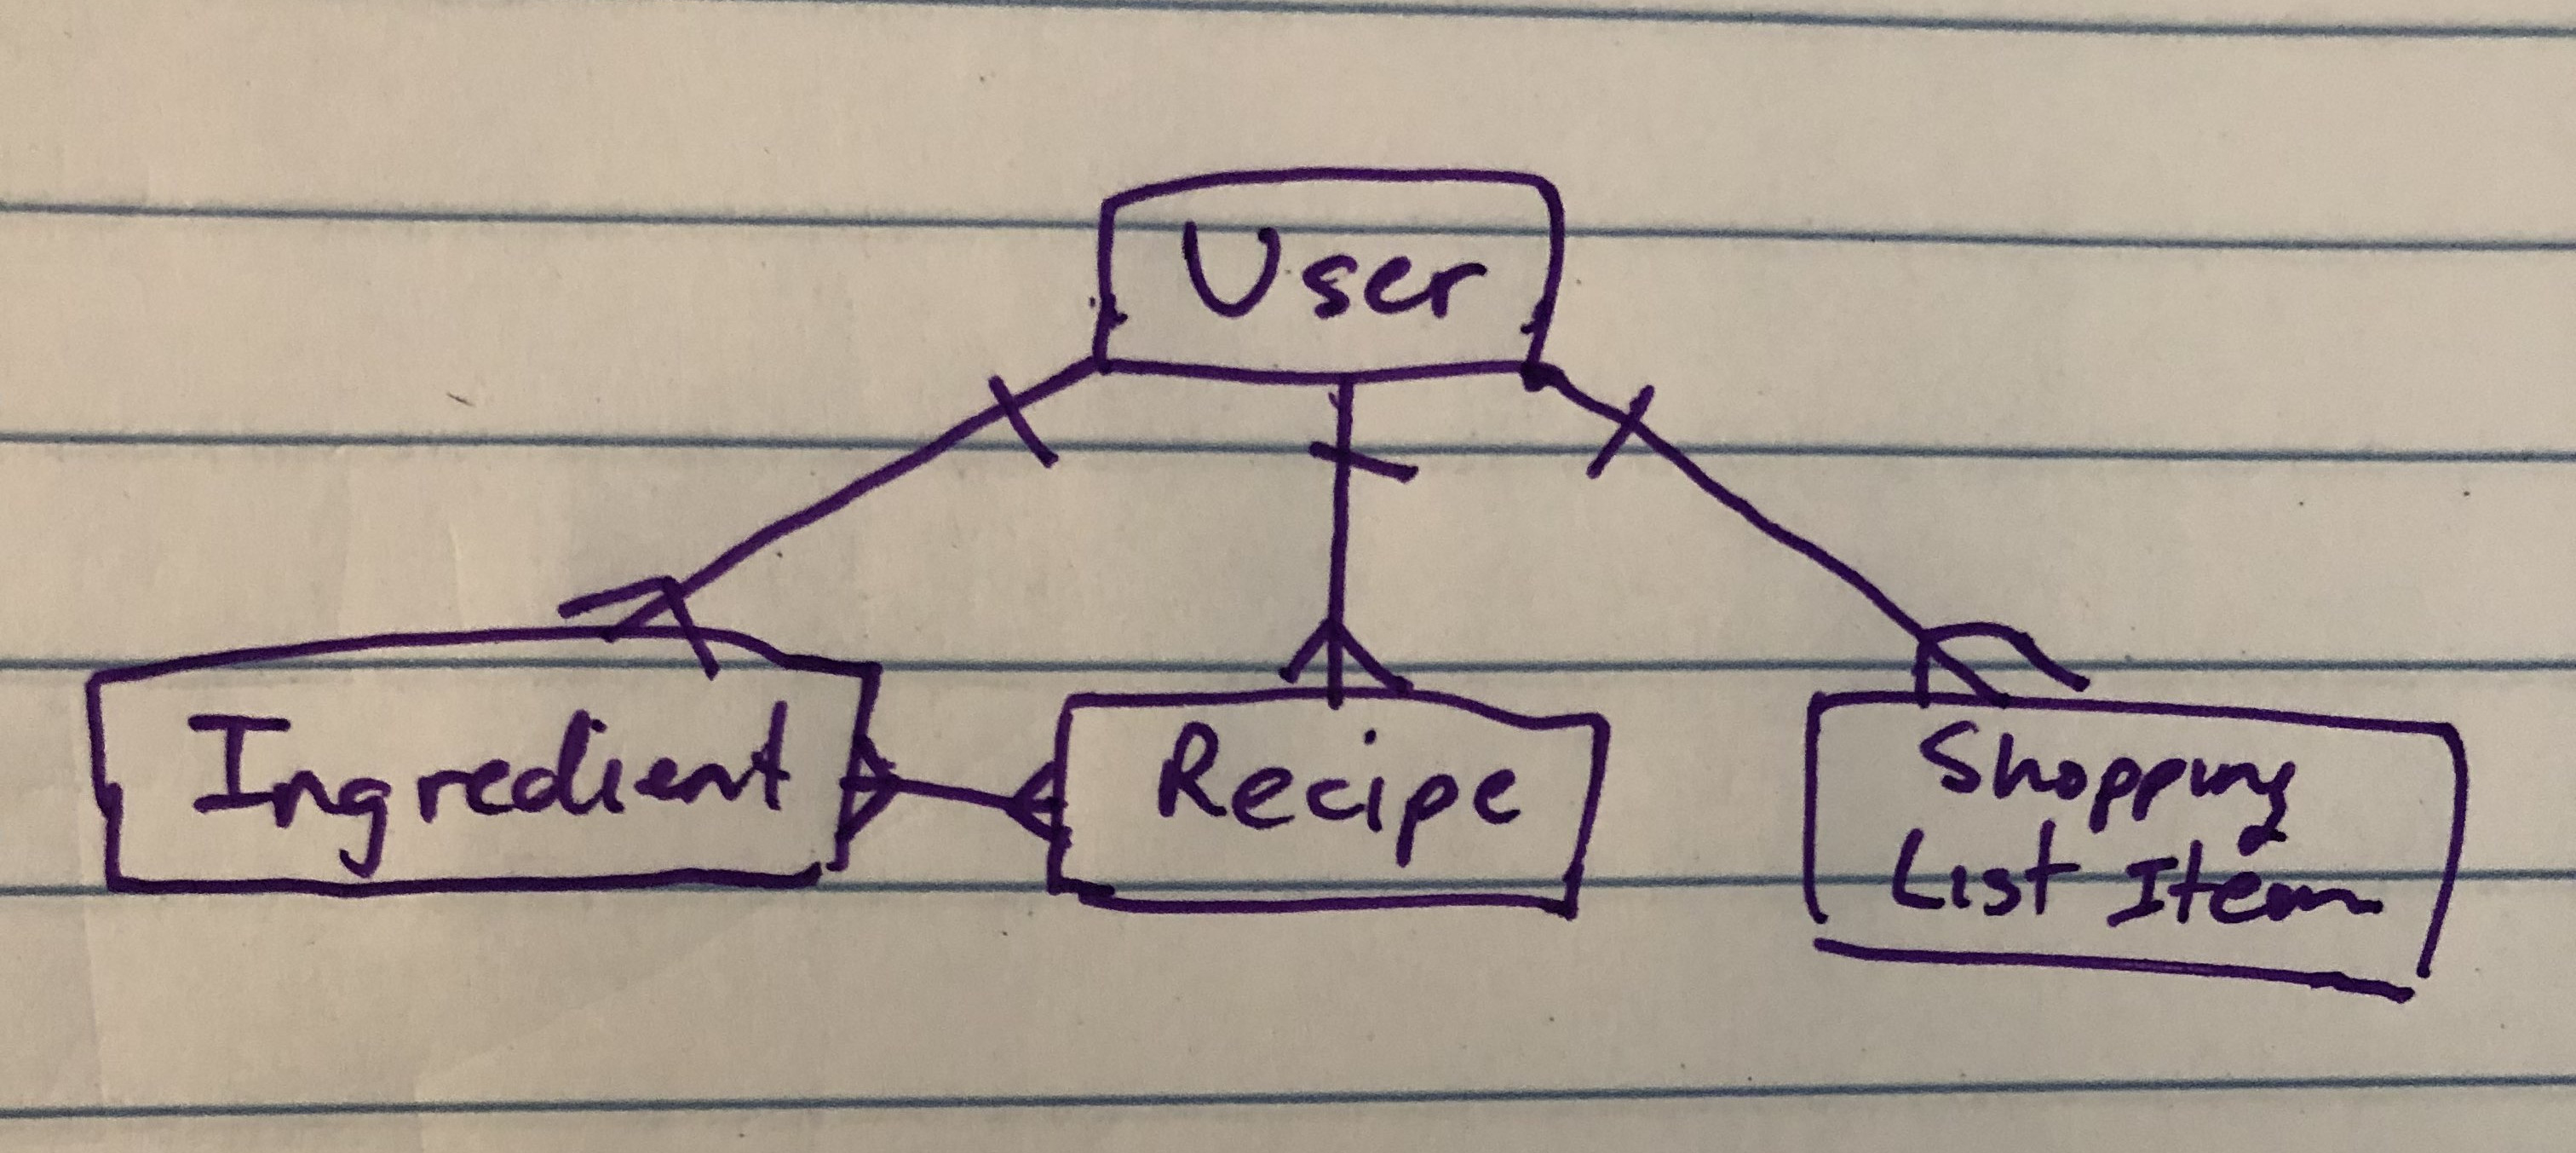 User
Ingredient
Recipe
Shopping
List Item